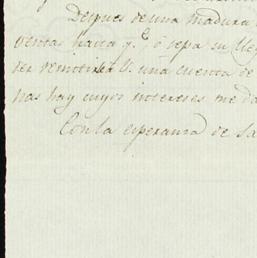 Despues de una madura
ventas hasta q.e ó sepa su lle
ser remitirle V. una cuenta de
nas hay cuyos intereses me da
Con la esperanza de sa